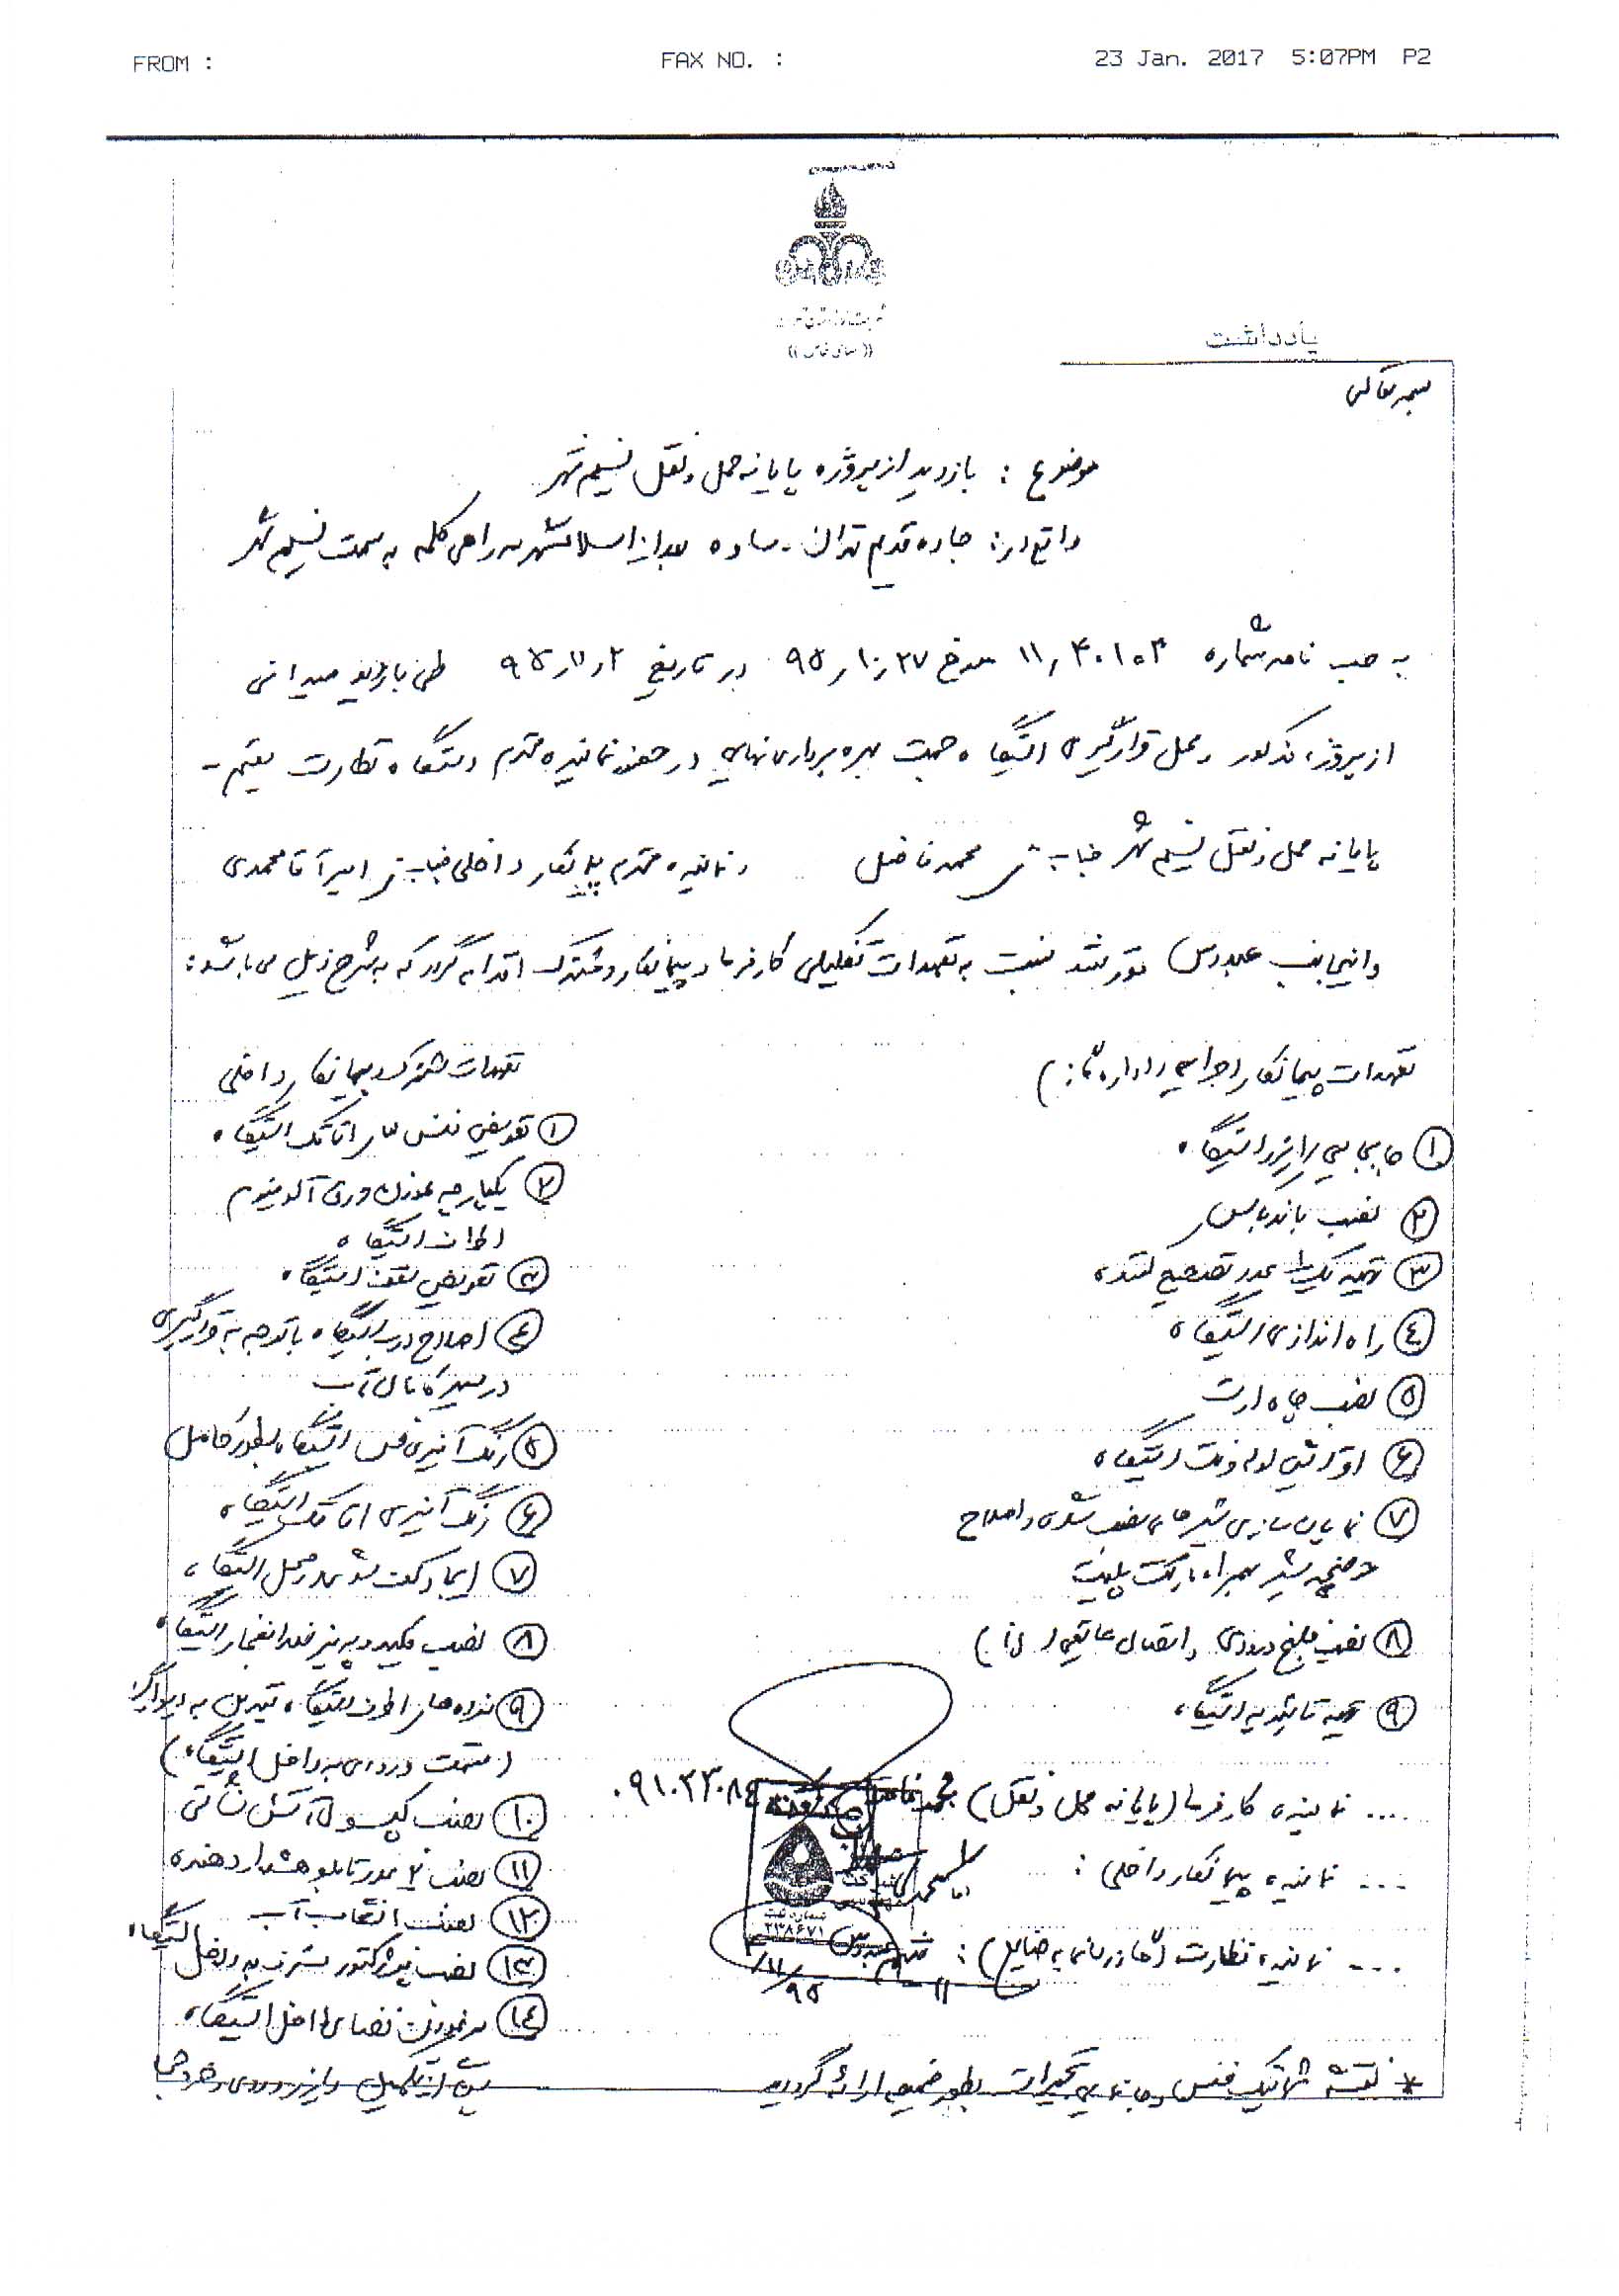 FROM : FAX NO. : 23 Jan. 2017 5:07PM P2
یادداشت
بسمه تعالی
موضوع : بازدید از پروژه پایانه حمل و نقل نسیم شهر
واقع در: جاده قدیم تهران - ساوه بعد از اسلامشهر سه راهی گلمه به سمت نسیم شهر
نامه شماره ۱۱٫۴۰۱۰۳ مورخ ۹۵٫۱۰٫۲۷ در تاریخ ۹۵٫۱۱٫۲ طی بازدید میدانی
از پروژه مذکور و محل قرارگیری ایستگاه جهت بهره برداری نهایی در حضور نماینده محترم دستگاه نظارت مقیم -
پایانه حمل و نقل نسیم شهر جناب محمد فاضل و نماینده محترم پیمانکار داخلی جناب امیر آقامحمدی
و اینجانب عبدوس مقرر شد نسبت به تعهدات تکمیلی کارفرما و پیمانکار و مشترک اقدام گردد که به شرح ذیل می باشد :
تعهدات پیمانکار اجرایی (اداره گاز)
۱ جابجایی رایزر ایستگاه
۲ نصب باندباکس
۳ تهیه یک عدد تصحیح کننده
۴ راه اندازی ایستگاه
۵ نصب چاه ارت
۶ لوله ونت ایستگاه
۷ نمایان سازی شیرهای نصب شده و اصلاح
حوضچه شیر همراه مارکت پلیت
۸ نصب فلنج ورودی و اتصال عایقی
۹ تهیه تائیدیه ایستگاه
تعهدات مشترک و پیمانکار داخلی
۱ تعویض فنس اتاقک ایستگاه
۲ یکپارچه نمودن ورق آلومینیوم
اطراف ایستگاه
۳ تعویض سقف ایستگاه
۴ اصلاح درب ایستگاه با توجه به قرارگیری
در مسیر کانال آب
۵ رنگ آمیزی فنس ایستگاه بطور کامل
۶ رنگ آمیزی اتاقک ایستگاه
۷ ایجاد محل ایستگاه
۸ نصب کلید و پریز ضد انفجار ایستگاه
۹ نرده های اطراف ایستگاه تبدیل به دیوار
(قسمت ورودی به داخل ایستگاه)
۱۰ نصب کپسول آتش نشانی
۱۱ نصب ۲ عدد تابلو هشدار دهنده
۱۲ نصب انشعاب آب
۱۳ نصب پرژکتور مشرف به داخل ایستگاه
۱۴ نمودن فضای داخل ایستگاه
پس از تکمیل رایزر ورودی و خروجی
.... نماینده کارفرما (پایانه حمل و نقل) محمد فاضل
... نماینده پیمانکار داخلی :
... نماینده نظارت
۲۳۸۶۷۱
۹۵/۱۱/۳
* نقشه شماتیک فنس و جانمایی تجهیزات بطور ضمیمه ارائه گردید